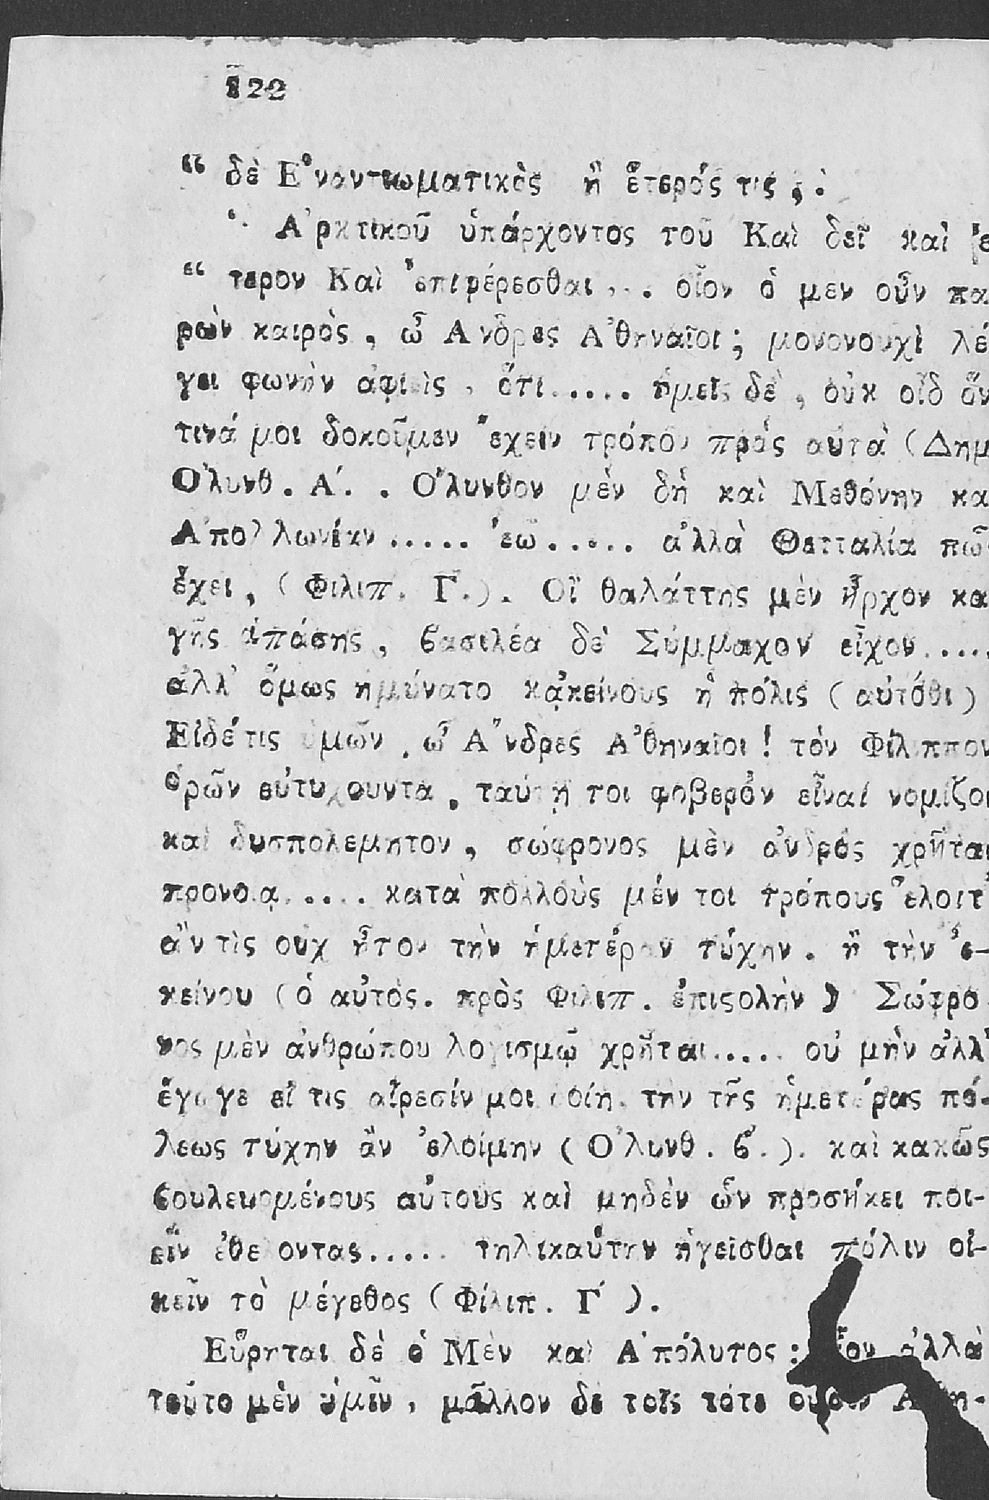 122
“ δὲ Ε᾿ναντιωματικὸς ἢ ἕτερός τις ; :
Α᾿ρκτικοῦ ὑπάρχοντος τοῦ Καὶ δεῖ καὶ ἕ
“ τερον Καὶ ἐπιφέρεσθαι ... οἷον ὁ μεν οὖν πα
ρὼν καιρὸς , ὦ Ανδρες Α᾿θηναῖοι ; μονονουχὶ λέ
γει φωνὴν ἀφιεὶς , ὅτι ..... ἡμεῖς δὲ , οὐκ οἶδ ὅν
τινά μοι δοκοῦμεν ἔχειν τρόπον πρὸς αὐτὰ ( Δημ
Ο᾿λυνθ . Α΄. . Ο῎λυνθον μὲν δὴ καὶ Μεθόνην κα
Α᾿πολλωνίαν ..... ἐῶ ..... ἀλλὰ Θετταλία πῶ
ἔχει , ( Φιλιπ. Γ΄.) . Οἳ θαλάττης μὲν ἦρχον κα
γῆς ἁπάσης , ϐασιλέα δὲ Σύμμαχον εἶχον .....
ἀλλ᾿ ὅμως ἠμύνατο κᾀκείνους ἡ πόλις ( αὐτόθι )
Εἰδέτις ὑμῶν , ὦ Α῎νδρες Α᾿θηναῖοι ! τόν Φίλιππον
ὁρῶν εὐτυχουντα , ταύτῃ τοι φοβερὸν εἶναί νομίζοι
καὶ δυσπολεμητον , σώφρονος μὲν ἀνδρὸς χρῆται
προνοιᾳ ..... κατὰ πολλοὺς μέν τοι τρόπους ἕλοιτ᾿
ἄν τὶς ουχ ἧτον τὴν ἡμετέραν τύχην . ἢ τὴν ἐ-
κείνου ( ὁ αὐτὸς . πρὸς Φιλιπ . ἐπιςολὴν ) Σώφρο
νος μὲν ἀνθρώπου λογισμῷ χρῆται ..... οὐ μὴν ἀλλ᾿
ἔγωγε εἴ τις αἵρεσίν μοι δοίη . την τῆς ἡμετέρας πό-
λεως τύχην ἂν ἑλοίμην ( Ο᾿λυνθ . ϐ΄.) . καὶ κακῶς
ϐουλευομένους αὐτοὺς καὶ μηδὲν ὧν προσήκει ποι-
εῖν ἐθελοντας ..... τηλικαύτην ἡγεῖσθαι πόλιν οἰ-
κεῖν τὸ μέγεθος ( Φίλιπ . Γ΄ ) .
Εὕρηται δὲ ὁ Μὲν καὶ Α᾿πόλυτος : οἷον ἀλλὰ
τοῦτο μὲν ὑμῖν , μᾶλλον δὲ τοῖς τότε